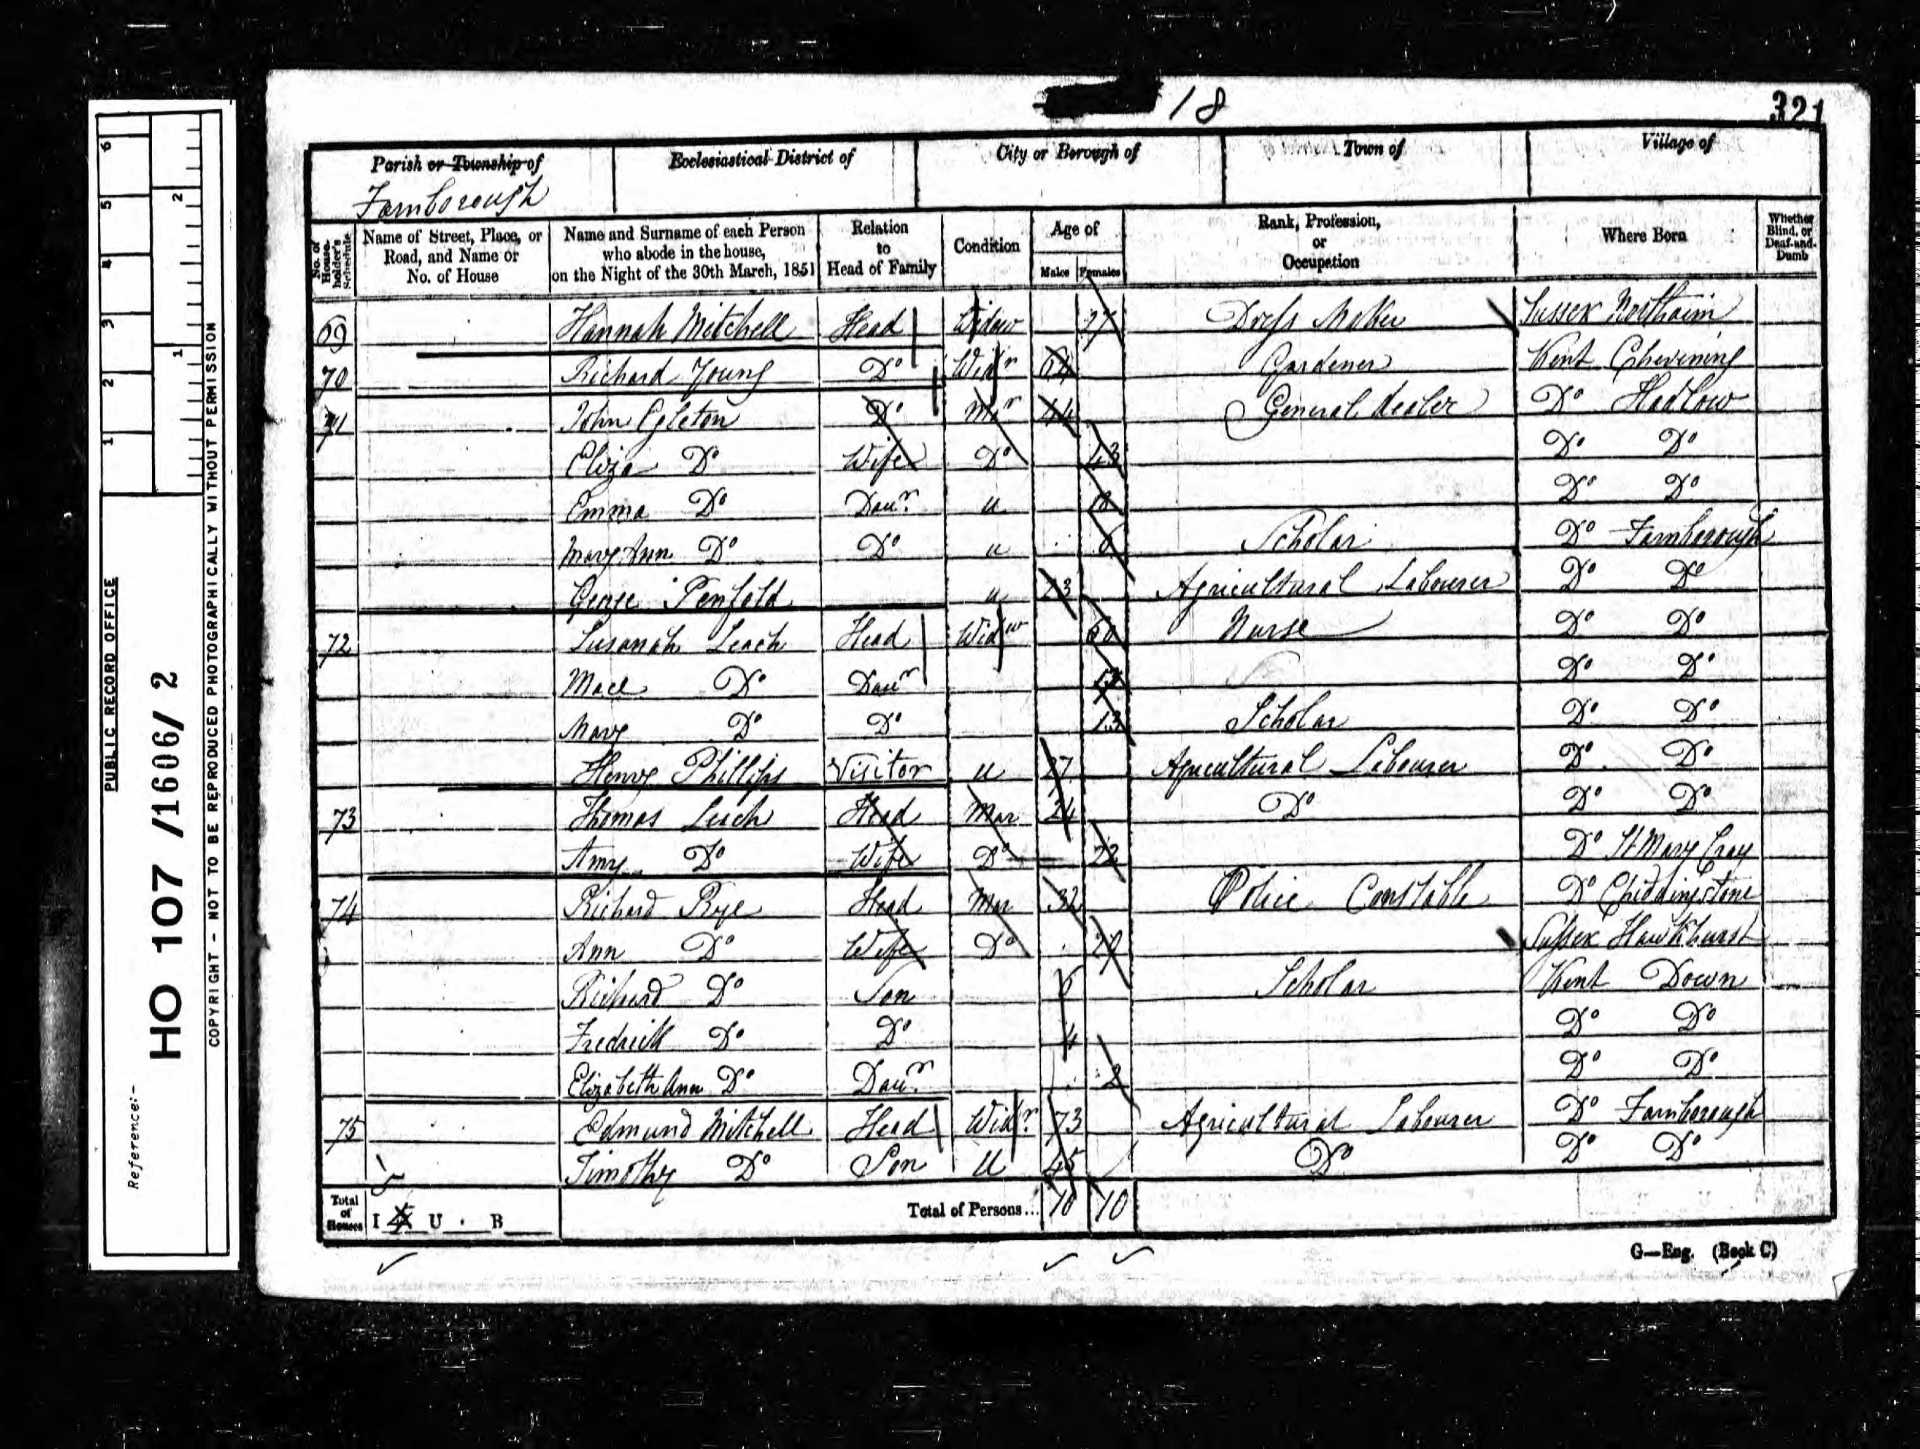 18
321
Parish or Township of
Farnborough
Ecclesiastical District of
City or Borough of
Town of
Village of
No. of Householder's Schedule
Name of Street, Place, or Road, and Name or No. of House
Name and Surname of each Person who abode in the house, on the Night of the 30th March, 1851
Relation to Head of Family
Condition
Age of
Males Females
Rank, Profession, or Occupation
Where Born
Whether Blind, or Deaf-and-Dumb
69 Hannah Mitchell Head Widow Dress Maker Sussex
70 Richard Young Do Widr 64 Gardener Kent Chevening
71 John Egleton Do Mar 44 General dealer Do Hadlow
Eliza Do Wife Do 43 Do Do
Emma Do Daur u Do Do
Mary Ann Do Do u Scholar Do Farnborough
George Penfold u Agricultural Labourer Do Do
72 Susanah Leach Head Widw Nurse Do Do
Do Daur Do Do
Mary Do Do 13 Scholar Do Do
Henry Phillips Visitor u 27 Agricultural Labourer Do Do
73 Thomas Leach Head Mar Do Do Do
Amy Do Wife Do Do St Mary Cray
74 Richard Rye Head Mar 32 Police Constable Do Chiddingstone
Ann Do Wife Do Sussex Hawkhurst
Richard Do Son 6 Scholar Kent Down
Fredrick Do Do 4 Do Do
Elizabeth Ann Do Daur 2 Do Do
75 Edmund Mitchell Head Widr 73 Agricultural Labourer Do Farnborough
Timothy Do Son U 45 Do Do Do
Total of Houses I 5 U B
Total of Persons... 10 10
G—Eng. (Book C)
PUBLIC RECORD OFFICE
Reference:-
HO 107 /1606/ 2
COPYRIGHT - NOT TO BE REPRODUCED PHOTOGRAPHICALLY WITHOUT PERMISSION
1 2 3 4 5 6
1 2